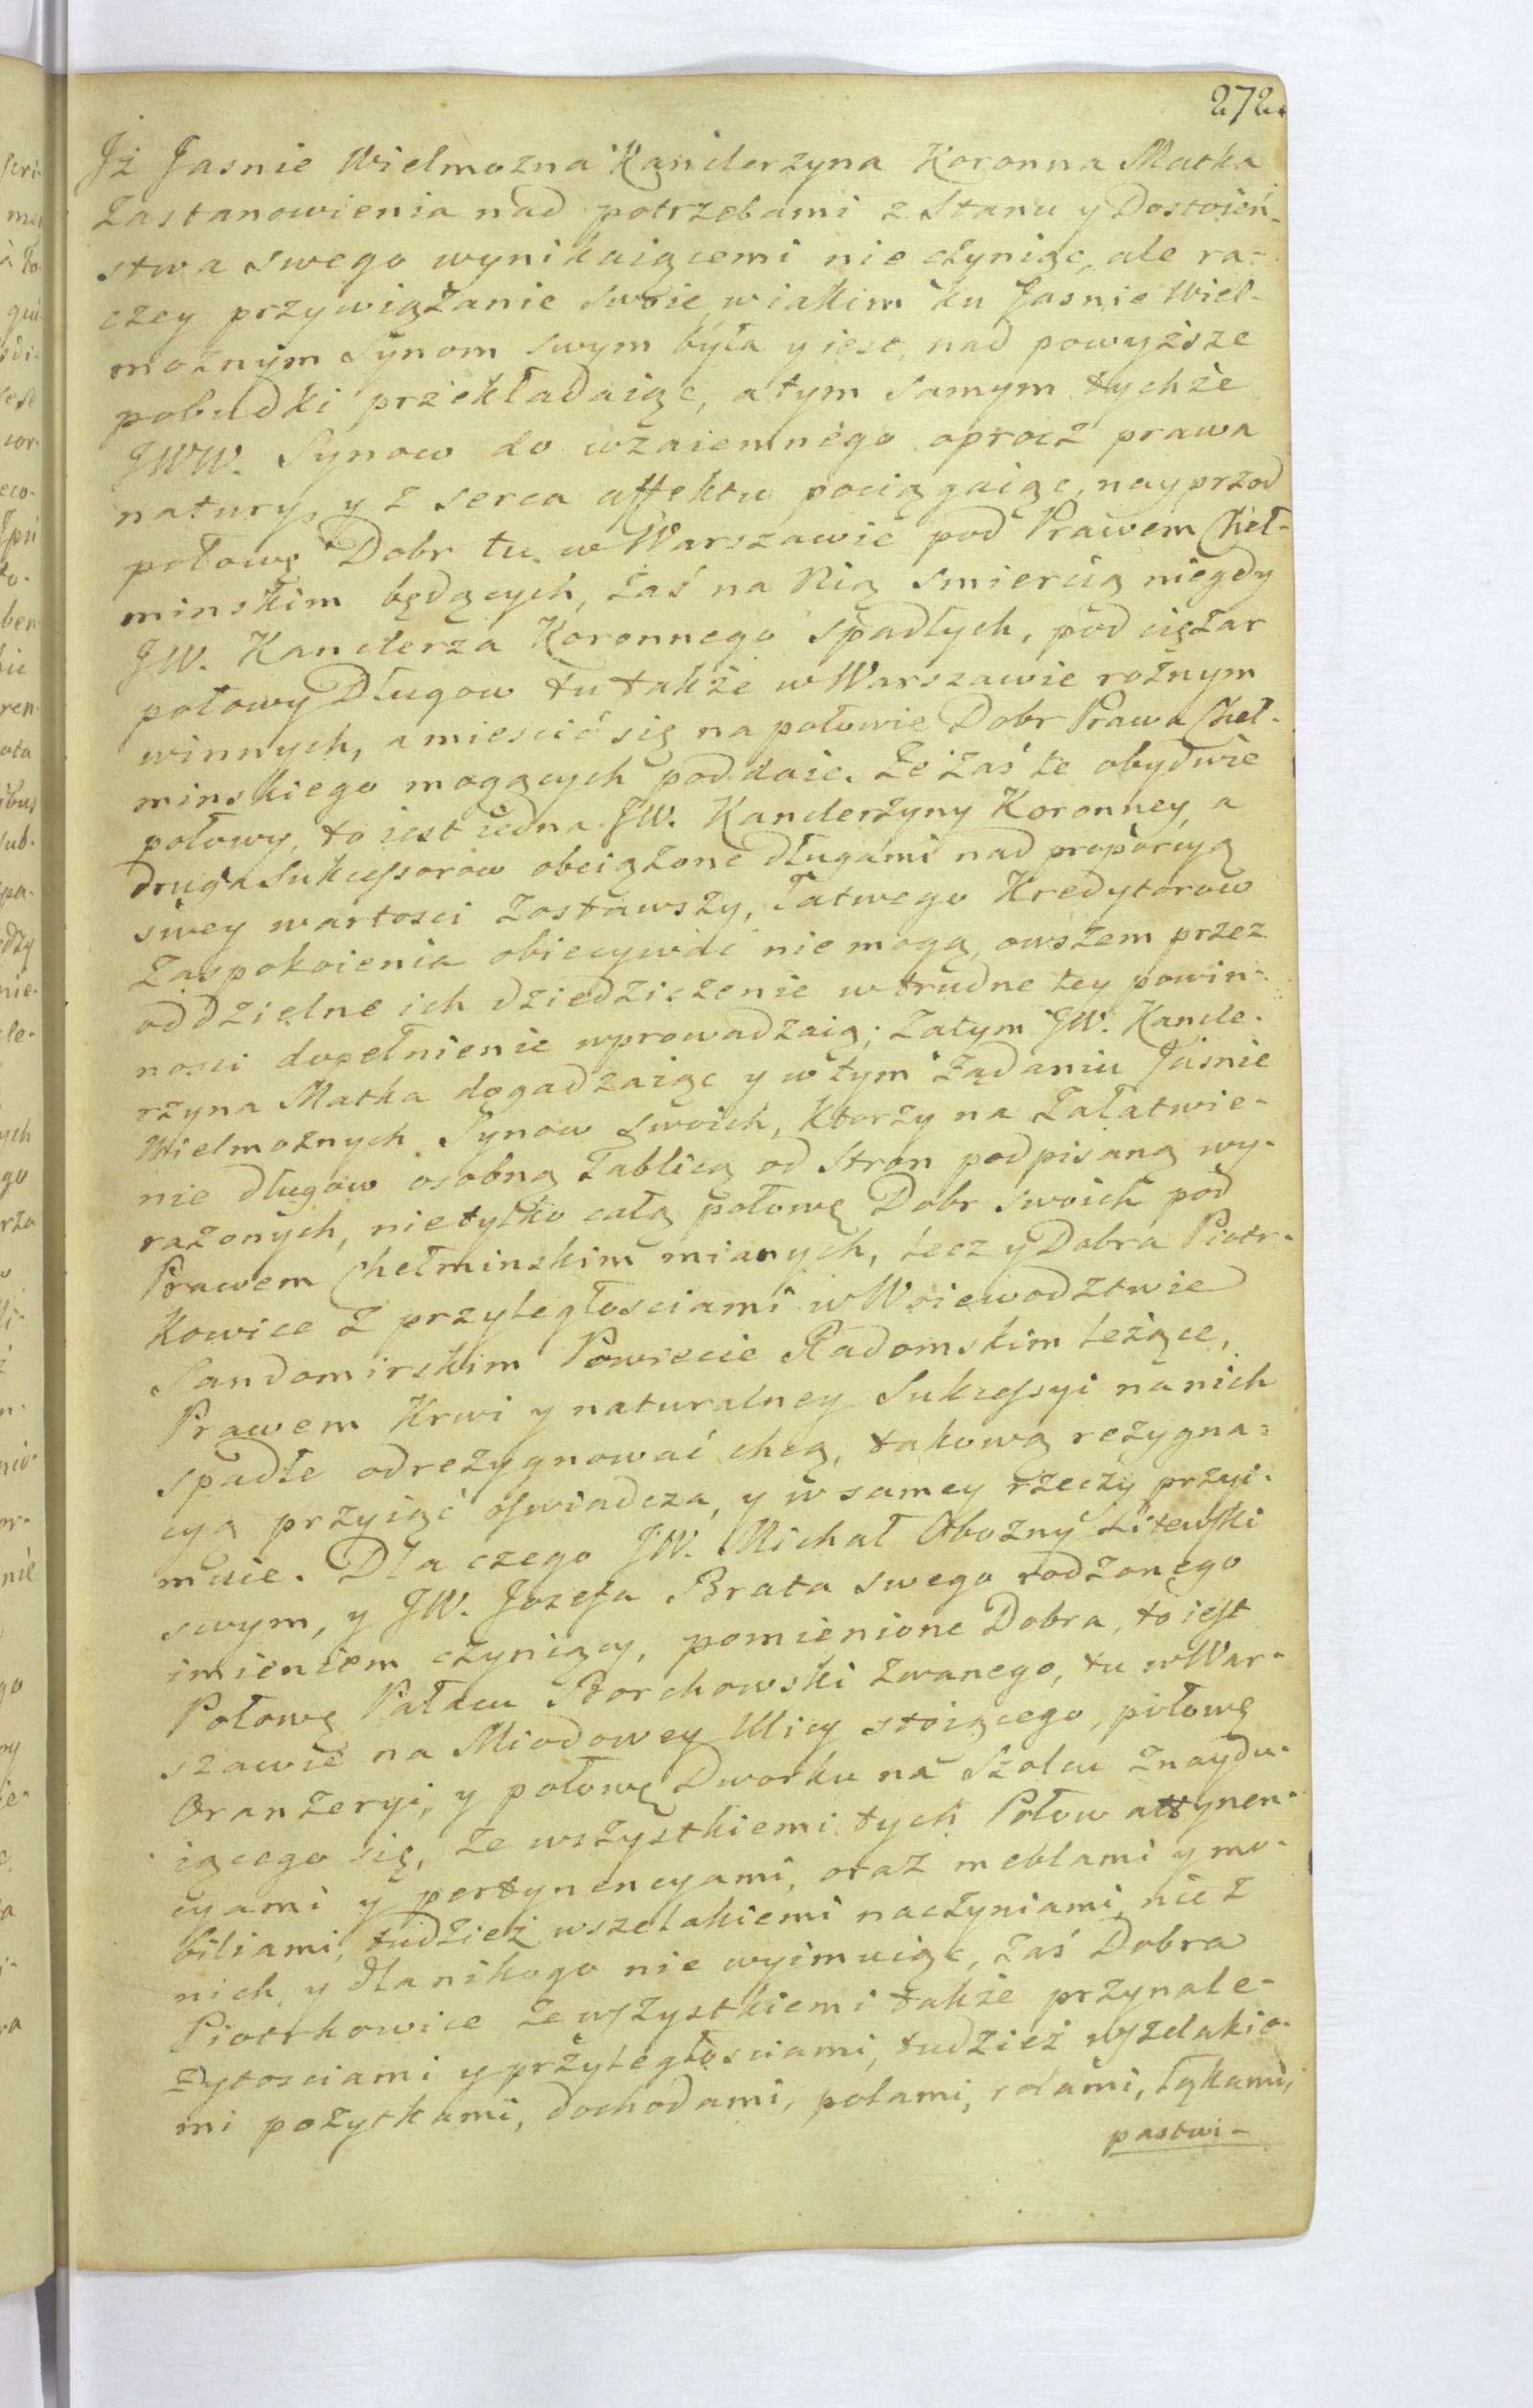 272.
Jż Jasnie Wielmożna Kanclerzyna Koronna Matka
Zastanowienia nad potrzebami z Stanu y Dostoień-
stwa swego wynikaiącemi nie czyniąc, ale ra-
czey przywiązanie swoie, w iakim ku Jasnie Wiel-
możnym Synom swym była y iest, nad powyższe
pobudki przekładaiąc, a tym samym tychże
JWW. Synow do wzaiemnego oprocz prawa
natury, y z serca affektu pociągaiąc, nayprzod
połowę Dobr tu w Warszawie pod Prawem Cheł-
minskim będących, zaś na Nią smiercią niegdy
JW. Kanclerza Koronnego spadłych, pod ciężar
połowy Długow tu także w Warszawie rożnym
winnych, a miescić się na połowie Dobr Prawa Cheł-
minskiego mogących poddaie. Że zaś te obydwie
połowy, to iest iedna JW. Kanclerzyny Koronney, a
druga Sukcessorow obciążone długami nad proporcyą
swey wartosci zostawszy, łatwego Kredytorow
Zaspokoienia obiecywać nie mogą, owszem przez
oddzielne ich dziedziczenie w trudne tey powin-
nosci dopełnienie wprowadzaią; Zatym JW. Kancle-
rzyna Matka dogadzaiąc y w tym żądaniu Jasnie
Wielmożnych Synow swoich, ktorzy na Załatwie-
nie długow osobną Tablicą od Stron podpisaną wy-
rażonych, nietylko całą połowę Dobr swoich pod
Prawem Chełminskim mianych, lecz y Dobra Piotr-
kowice z przyległosciami w Woiewodztwie
Sandomirskim Powiecie Radomskim leżące,
Prawem Krwi y naturalney Sukcessyi na nich
spadłe odrezygnować chcą, takową rezygna-
cyą przyiąć oswiadcza, y w samey rzeczy przyi-
muie. Dla czego JW. Michał Obozny Litewski
swym, y JW. Jozefa Brata swego rodzonego
imieniem czyniący, pomienione Dobra, to iest
Połowę Pałacu Borchowski zwanego, tu w War-
szawie na Miodowey Ulicy stoiącego, połowę
Oranżeryi, y połowę Dworku na Szolcu znaydu-
iącego się, ze wszystkiemi tych Połow attynen-
cyami y pertynencyami, oraz meblami y mo-
biliami, tudzież wszelakiemi naczyniami, nic z
nich y dla nikogo nie wyimuiąc, zaś Dobra
Piotrkowice ze wszystkiemi także przynale-
żytosciami y przyległosciami, tudzież wszelakie-
mi pożytkami, dochodami, polami, rolami, łąkami,
pastwi-